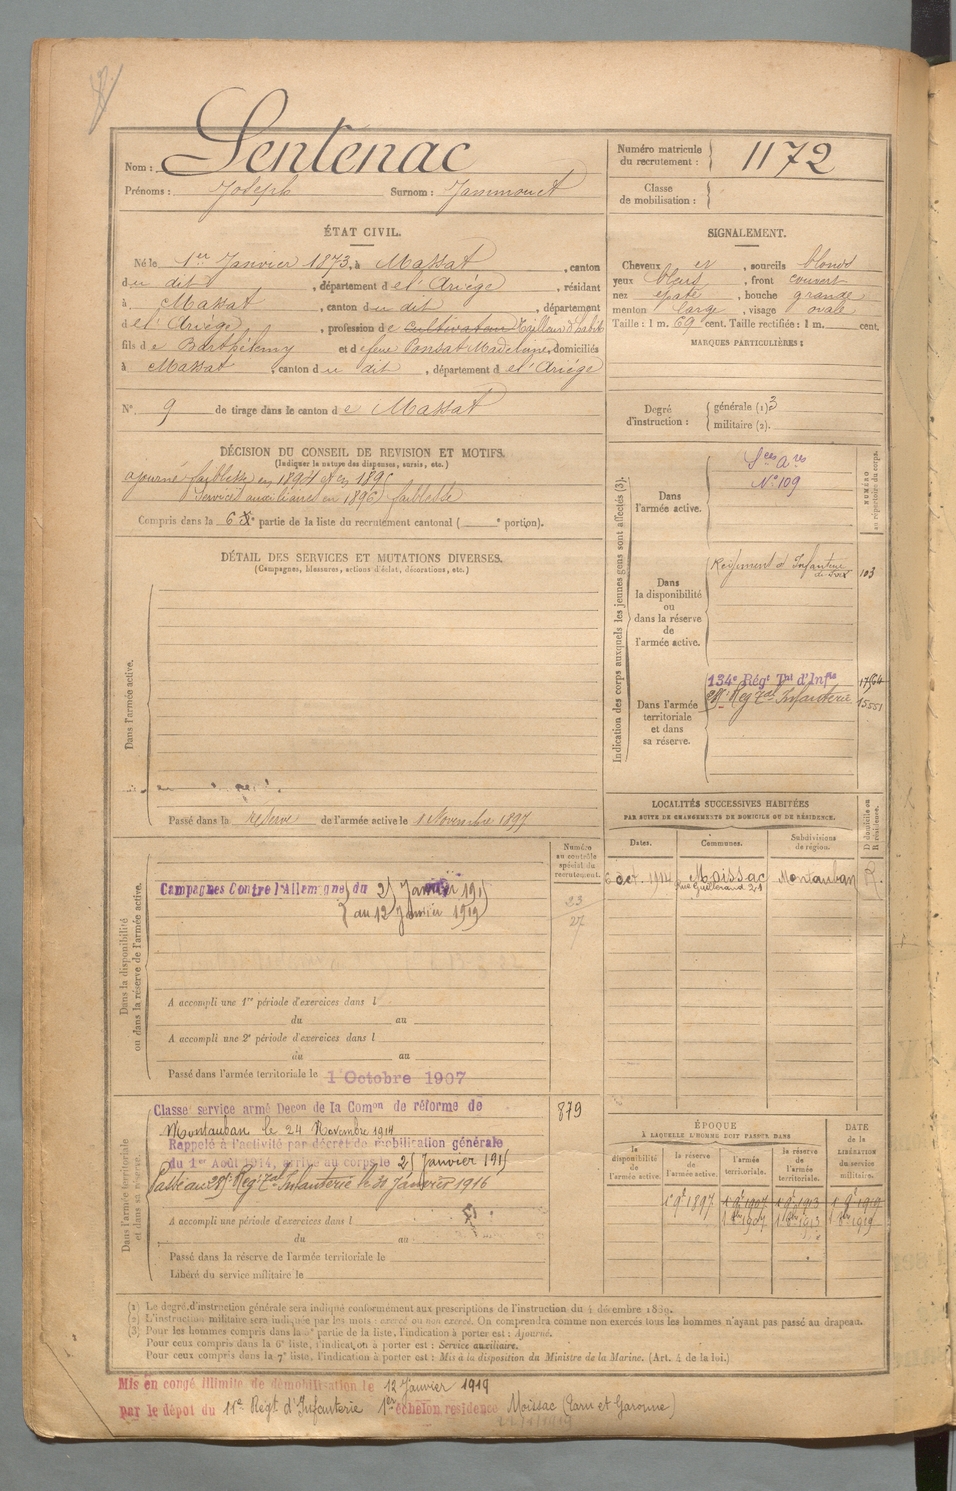 Nom : Sentenac
Prénoms : Joseph Surnom :
Numéro matricule
du recrutement : 1172
Classe
de mobilisation :
ÉTAT CIVIL.
Né le 1er Janvier 1873, à Massat, canton
du dit, département de l'Ariège, résidant
à Massat, canton du dit, département
de l'Ariège, profession de cultivateur Tailleur d'habits
fils de Barthélemy et de feue Ponsat Madeleine, domiciliés
à Massat, canton du dit, département de l'Ariège
N° 9 de tirage dans le canton de Massat
SIGNALEMENT.
Cheveux et, sourcils blonds
yeux bleus, front couvert
nez épaté, bouche grande
menton large, visage ovale
Taille : 1 m. 69 cent. Taille rectifiée : 1 m. cent.
MARQUES PARTICULIÈRES :
Degré
d'instruction :
générale (1) 3
militaire (2).
DÉCISION DU CONSEIL DE REVISION ET MOTIFS.
(Indiquer la nature des dispenses, sursis, etc.)
ajourné faiblesse en 1894 et en 1895
Services auxiliaires en 1896 faiblesse
Compris dans la 6e partie de la liste du recrutement cantonal ( e portion).
DÉTAIL DES SERVICES ET MUTATIONS DIVERSES.
(Campagnes, blessures, actions d'éclat, décorations, etc.)
Dans l'armée active.
Passé dans la réserve de l'armée active le 1 Novembre 1897
Indication des corps auxquels les jeunes gens sont affectés (3).
NUMÉRO
au répertoire du corps.
Dans
l'armée active.
Sces Ares
N° 109
Dans
la disponibilité
ou
dans la réserve
de
l'armée active.
Régiment d'Infanterie
de Foix 103
Dans l'armée
territoriale
et dans
sa réserve.
134e Régt Tal d'Infie 17964
Reg Tal Infanterie 15551
LOCALITÉS SUCCESSIVES HABITÉES
PAR SUITE DE CHANGEMENTS DE DOMICILE OU DE RÉSIDENCE.
D domicile ou
R résidence.
Dates. Communes. Subdivisions
de région.
6 Oct. 1914 Moissac Montauban R.
Numéro
au contrôle
spécial du
recrutement.
23
27
Dans la disponibilité
ou dans la réserve de l'armée active.
Campagnes Contre l'Allemagne du 25 Janvier 1915
au 12 Janvier 1919
A accompli une 1re période d'exercices dans l
du au
A accompli une 2e période d'exercices dans l
du au
Passé dans l'armée territoriale le 1 Octobre 1907
Dans l'armée territoriale
et dans sa réserve.
Classé service armé Decon de la Comon de réforme de
Montauban le 24 Novembre 1914
879
Rappelé à l'activité par décret de mobilisation générale
du 1er Août 1914, arrivé au corps le 25 Janvier 1915
Passé au Reg Tal Infanterie le Janvier 1916
A accompli une période d'exercices dans l
du au
Passé dans la réserve de l'armée territoriale le
Libéré du service militaire le
ÉPOQUE
À LAQUELLE L'HOMME DOIT PASSER DANS
DATE
de la
LIBÉRATION
du service
militaire.
la
disponibilité
de l'armée
active.
la réserve
de
l'armée active.
l'armée
territoriale.
la réserve
de
l'armée
territoriale.
1 9t 1897 1 9t 1907 1 9t 1913 1 9t 1919
1 8bre 1907 1 8bre 1913 1 8bre 1919
(1) Le degré d'instruction générale sera indiqué conformément aux prescriptions de l'instruction du 4 décembre 1889.
(2) L'instruction militaire sera indiquée par les mots : exercé ou non exercé. On comprendra comme non exercés tous les hommes n'ayant pas passé au drapeau.
(3) Pour les hommes compris dans la 5e partie de la liste, l'indication à porter est : Ajourné.
Pour ceux compris dans la 6e liste, l'indication à porter est : Service auxiliaire.
Pour ceux compris dans la 7e liste, l'indication à porter est : Mis à la disposition du Ministre de la Marine. (Art. 4 de la loi.)
Mis en congé illimité de démobilisation le 12 Janvier 1919
par le dépôt du 11e Régt d'Infanterie 1er échelon, résidence Moissac (Tarn et Garonne)